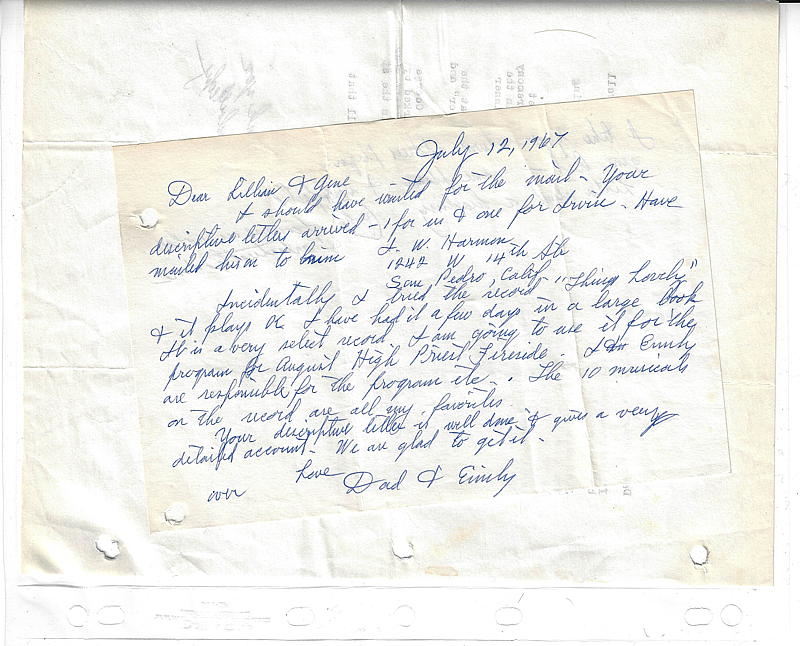 July 12, 1967
Dear Lillian & Gene
I should have waited for the mail - Your
discriptive letters arrived - 1 for us & one for Irvin - Have
mailed his on to him
I. W. Harmon
1242 W. 14th Str
San Pedro, Calif.
Incidentally I tried the record "Things Lovely"
& it plays OK I have had it a few days in a large book
It is a very select record & am going to use it for the
program for August High Priest Fireside. I & Emily
are responsible for the program etc. The 10 musicals
on the record are all my favorites
Your discriptive letter is well done & gives a very
detailed account - We are glad to get it -
Love
Dad & Emily
over